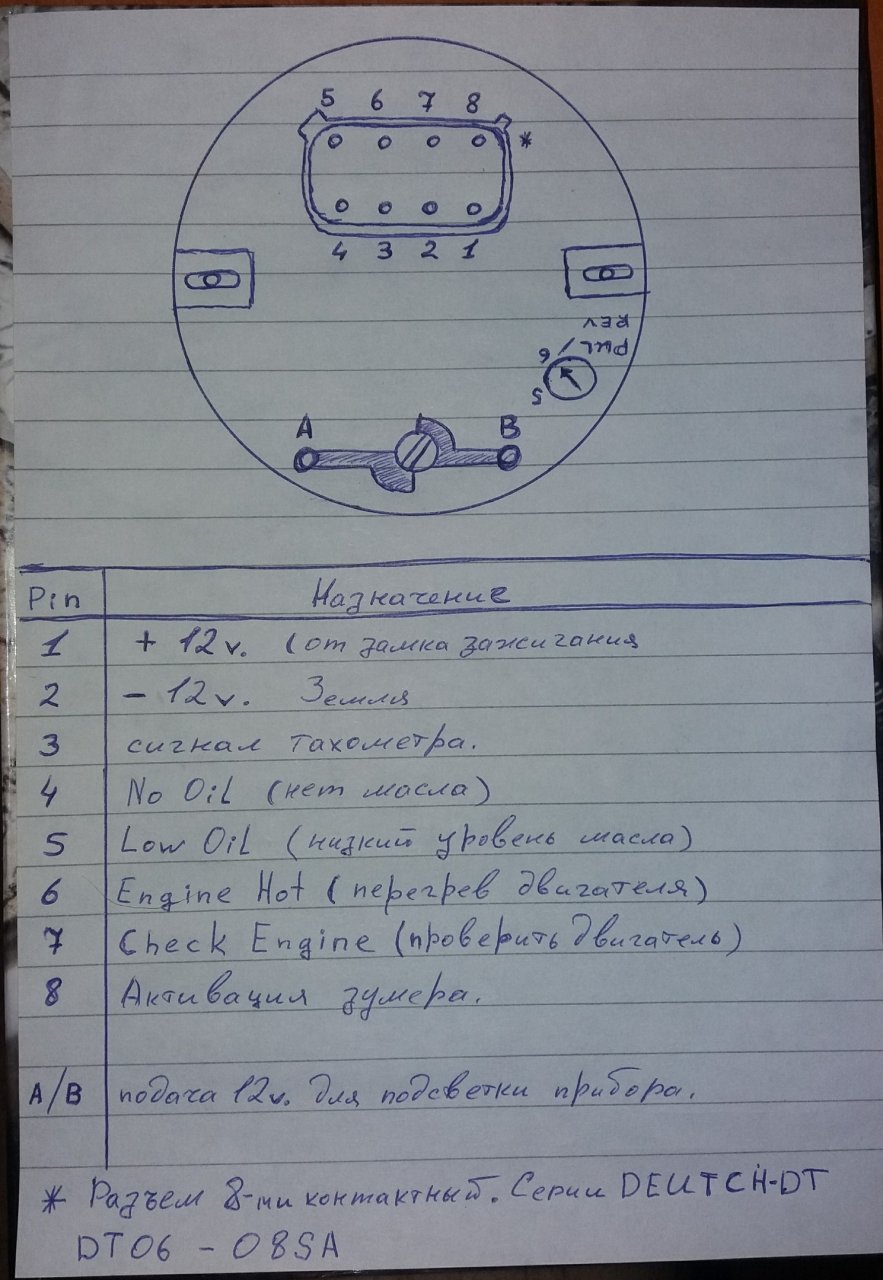 5 6 7 8
*
4 3 2 1
REV
PUL/
6
5
A B
Pin Назначение
1 + 12v. (от замка зажигания
2 - 12v. Земля
3 сигнал тахометра.
4 No Oil (нет масла)
5 Low Oil (низкий уровень масла)
6 Engine Hot (перегрев двигателя)
7 Check Engine (проверить двигатель)
8 Активация зумера.
A/B подача 12v. для подсветки прибора.
* Разъем 8-ми контактный. Серии DEUTCH-DT
DT06 - 08SA